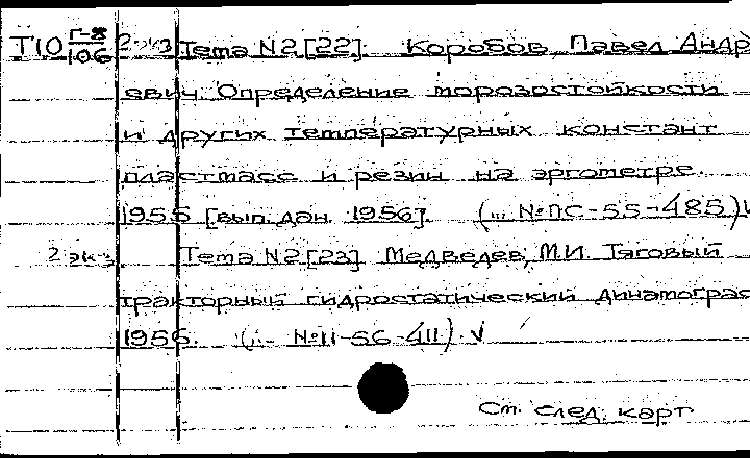 Т10 Г-8/106 2 экз Тема №2 [22]. Коробов, Павел Андр
евич. Определение морозостойкости
и других температурных констант
пластмасс и резин на эргометре.
1955 [вып. дан. 1956]. (... № ПС-55-485) V
2 экз. Тема №2 [23]. Медведев, М.И. Тяговый
тракторный гидростатический динамограф
1956. (... № 11-56-411). V
См. след. карт